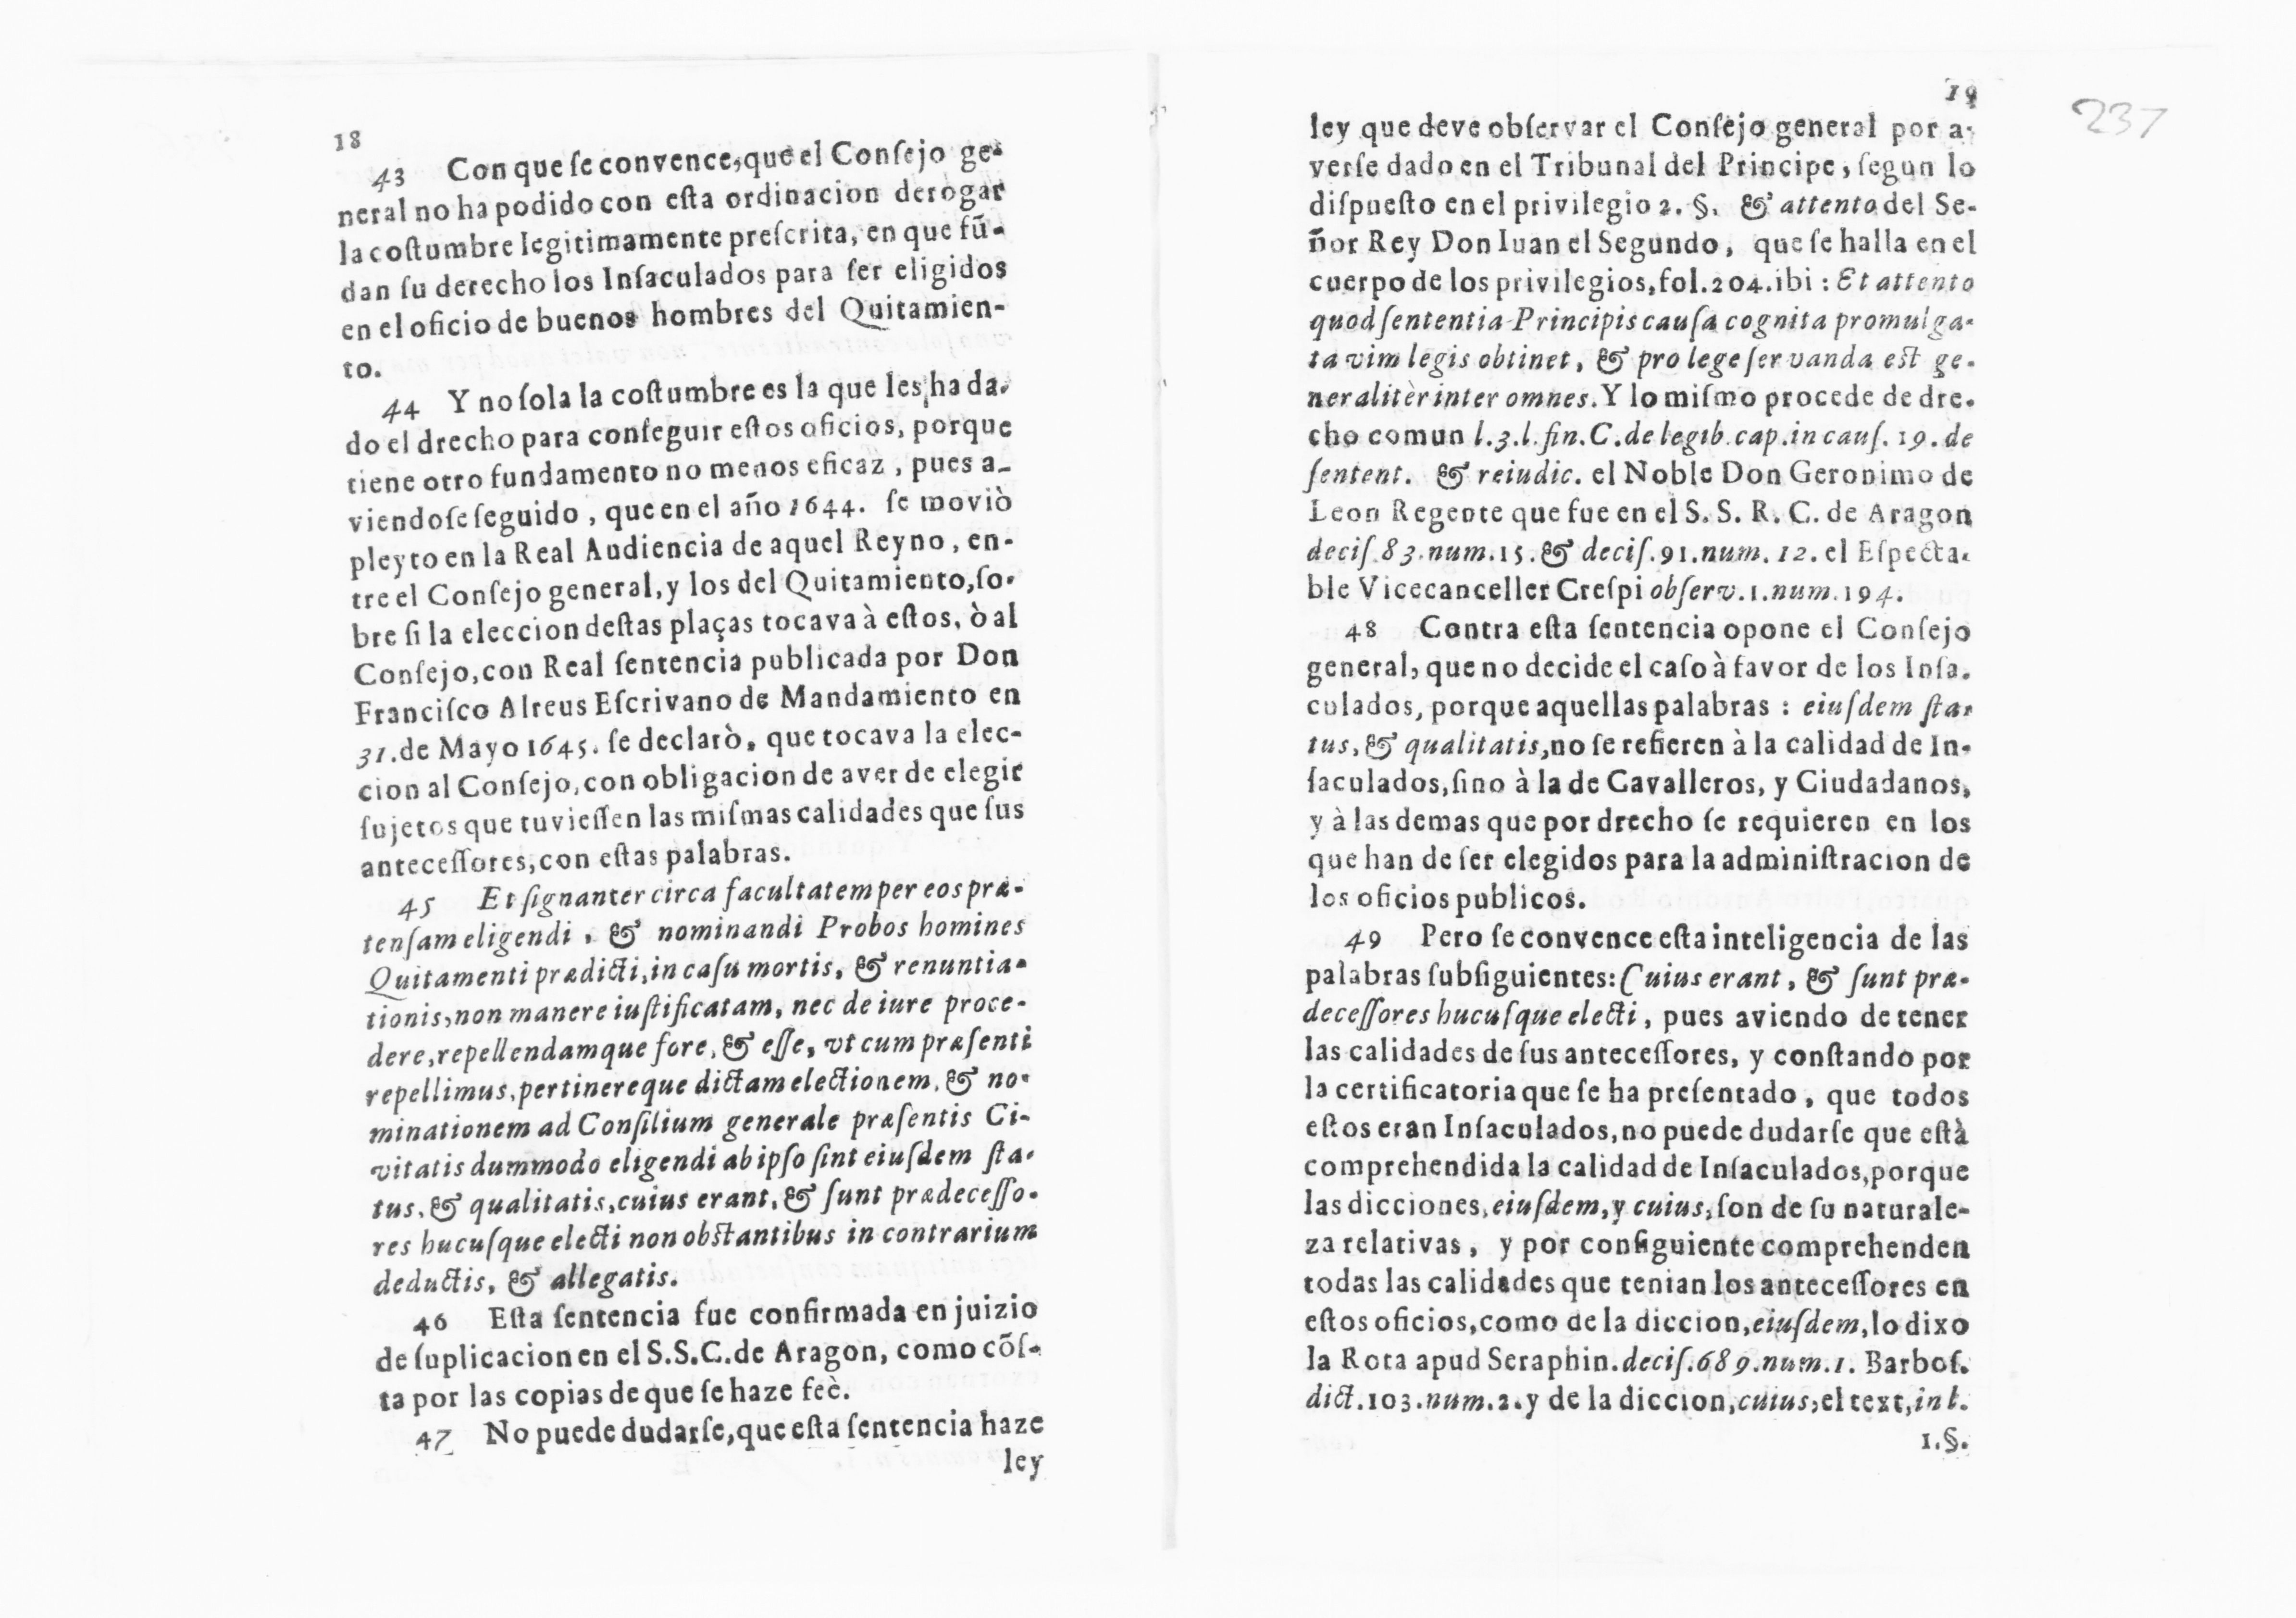 18
43 Con que ſe convence, que el Conſejo ge-
neral no ha podido con eſta ordinacion derogar
la coſtumbre legitimamente preſcrita, en que fũ-
dan ſu derecho los Inſaculados para ſer eligidos
en el oficio de buenos hombres del Quitamien-
to.
44 Y no ſola la coſtumbre es la que les ha da-
do el drecho para conſeguir eſtos oficios, porque
tiene otro fundamento no menos eficaz, pues a-
viendoſe ſeguido, que en el año 1644. ſe moviò
pleyto en la Real Audiencia de aquel Reyno, en-
tre el Conſejo general, y los del Quitamiento, ſo-
bre ſi la eleccion deſtas plaças tocava à eſtos, ò al
Conſejo, con Real ſentencia publicada por Don
Franciſco Alreus Eſcrivano de Mandamiento en
31. de Mayo 1645. ſe declarò, que tocava la elec-
cion al Conſejo, con obligacion de aver de elegir
ſujetos que tuvieſſen las miſmas calidades que ſus
anteceſſores, con eſtas palabras.
45 Et ſignanter circa facultatem per eos præ-
tenſam eligendi, & nominandi Probos homines
Quitamenti prædicti, in caſu mortis, & renuntia-
tionis, non manere iuſtificatam, nec de iure proce-
dere, repellendamque fore, & eſſe, vt cum præſenti
repellimus, pertinereque dictam electionem, & no-
minationem ad Conſilium generale præſentis Ci-
vitatis dummodo eligendi ab ipſo ſint eiuſdem ſta-
tus, & qualitatis, cuius erant, & ſunt prædeceſſo-
res hucuſque electi non obſtantibus in contrarium
deductis, & allegatis.
46 Eſta ſentencia fue confirmada en juizio
de ſuplicacion en el S.S.C. de Aragon, como cõſ-
ta por las copias de que ſe haze feè.
47 No puede dudarſe, que eſta ſentencia haze
ley
19
237
ley que deve obſervar el Conſejo general por a-
verſe dado en el Tribunal del Principe, ſegun lo
diſpueſto en el privilegio 2. §. & attento del Se-
ñor Rey Don Iuan el Segundo, que ſe halla en el
cuerpo de los privilegios, fol. 204. ibi: Et attento
quod ſententia Principis cauſa cognita promulga-
ta vim legis obtinet, & pro lege ſervanda eſt ge-
neralitèr inter omnes. Y lo miſmo procede de dre-
cho comun l.3. l. fin. C. de legib. cap. in cauſ. 19. de
ſentent. & reiudic. el Noble Don Geronimo de
Leon Regente que fue en el S. S. R. C. de Aragon
deciſ. 83. num. 15. & deciſ. 91. num. 12. el Eſpecta-
ble Vicecanceller Creſpi obſerv. 1. num. 194.
48 Contra eſta ſentencia opone el Conſejo
general, que no decide el caſo à favor de los Inſa-
culados, porque aquellas palabras: eiuſdem ſta-
tus, & qualitatis, no ſe refieren à la calidad de In-
ſaculados, ſino à la de Cavalleros, y Ciudadanos,
y à las demas que por drecho ſe requieren en los
que han de ſer elegidos para la adminiſtracion de
los oficios publicos.
49 Pero ſe convence eſta inteligencia de las
palabras ſubſiguientes: Cuius erant, & ſunt præ-
deceſſores hucuſque electi, pues aviendo de tener
las calidades de ſus anteceſſores, y conſtando por
la certificatoria que ſe ha preſentado, que todos
eſtos eran Inſaculados, no puede dudarſe que eſtà
comprehendida la calidad de Inſaculados, porque
las dicciones, eiuſdem, y cuius, ſon de ſu naturale-
za relativas, y por conſiguiente comprehenden
todas las calidades que tenian los anteceſſores en
eſtos oficios, como de la diccion, eiuſdem, lo dixo
la Rota apud Seraphin. deciſ. 689. num. 1. Barboſ.
dict. 103. num. 2. y de la diccion, cuius, el text, in l.
1. §.